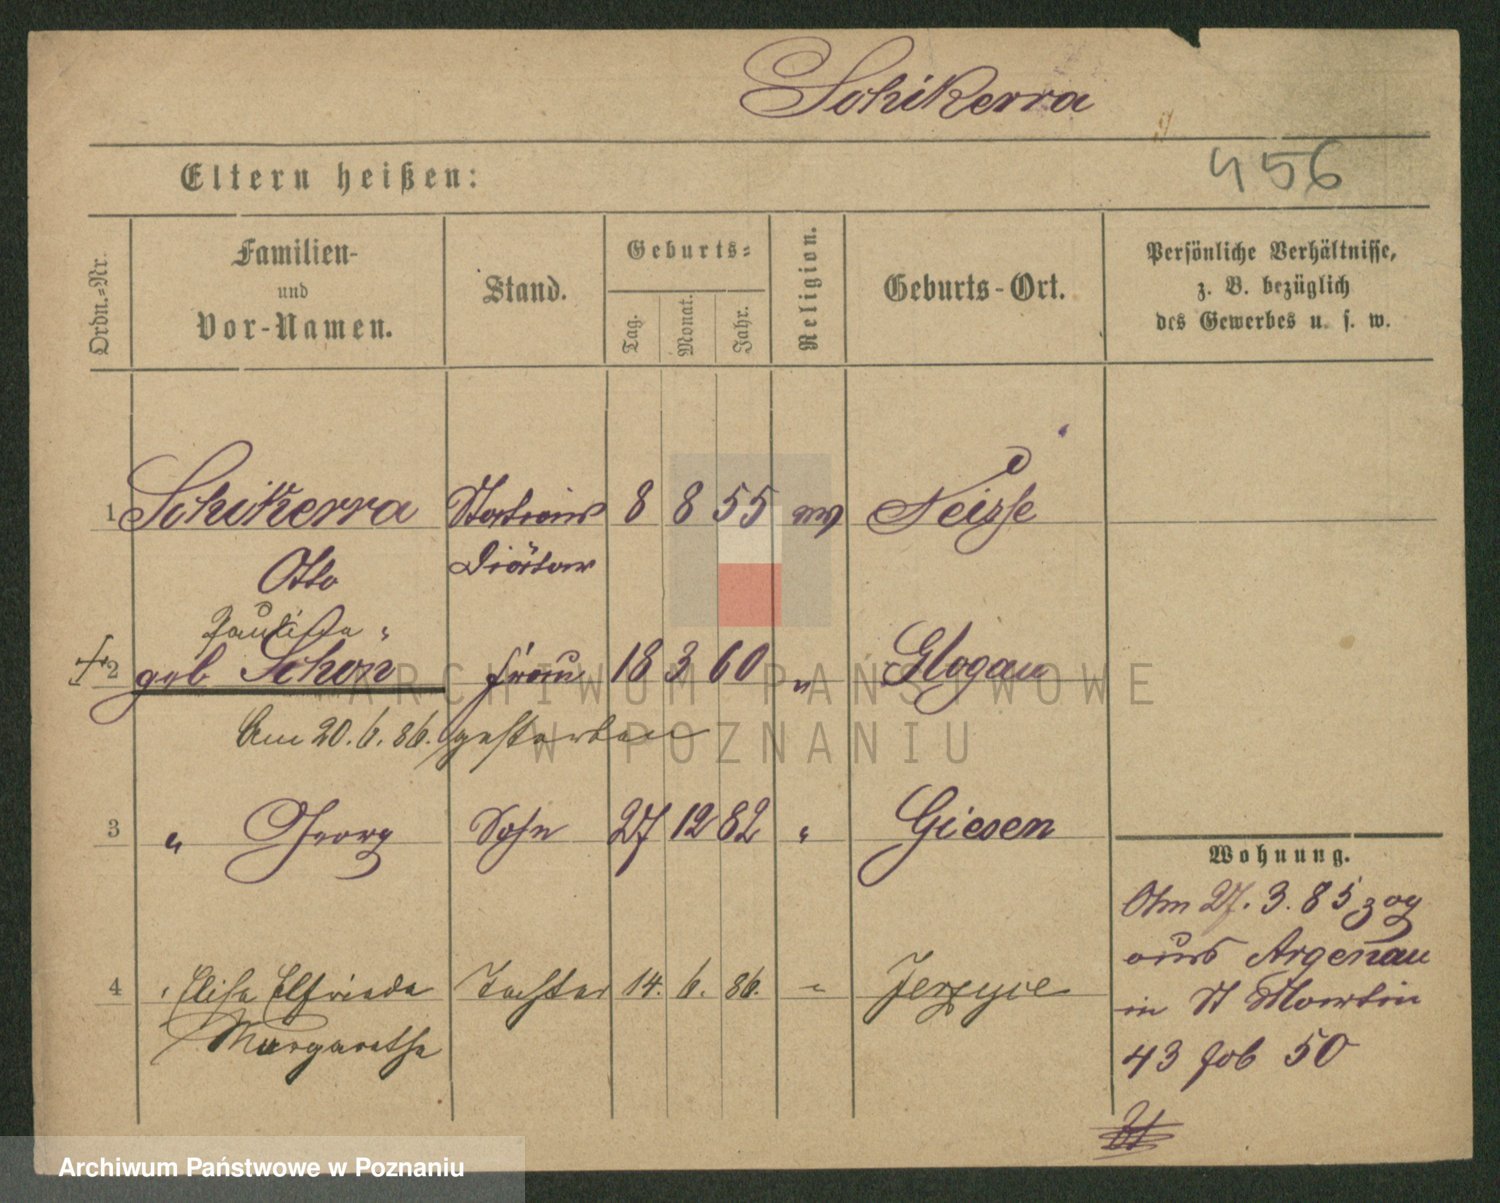 Schikerra
456
Eltern heißen:
Ordn.-Nr.
Familien-
und
Vor-Namen.
Stand.
Geburts-
Tag.
Monat.
Jahr.
Religion.
Geburts-Ort.
Persönliche Verhältnisse,
z. B. bezüglich
des Gewerbes u. s. w.
1 Schikerra Stations 8 8 55 Neisse
Otto Diätar
Paulina
2 geb Schon Frau 18 3 60 " Glogau
Am 20.6.86. gestorben
3 " Georg Sohn 27 12 82 " Giesen
4 " Elise Elfriede Tochter 14. 6. 86. " Jerzyce
Margarethe
Wohnung.
Am 27.3.85 zog
aus Argenau
in St Martin
43 50
ARCHIWUM PAŃSTWOWE
W POZNANIU
Archiwum Państwowe w Poznaniu